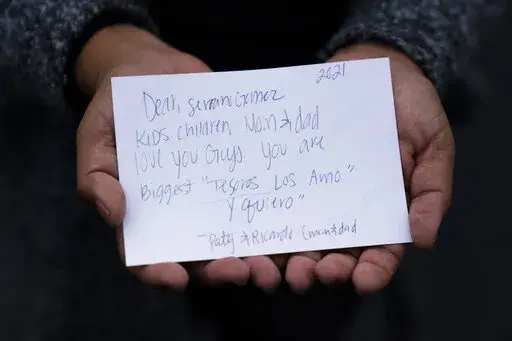 2021
Dear, Serrano Gomez
KIDS. Children Mom & dad
love You Guys. You are
Biggest "Tesoros Los Amo"
Y quiero"
-Paty & Ricardo (mom & dad